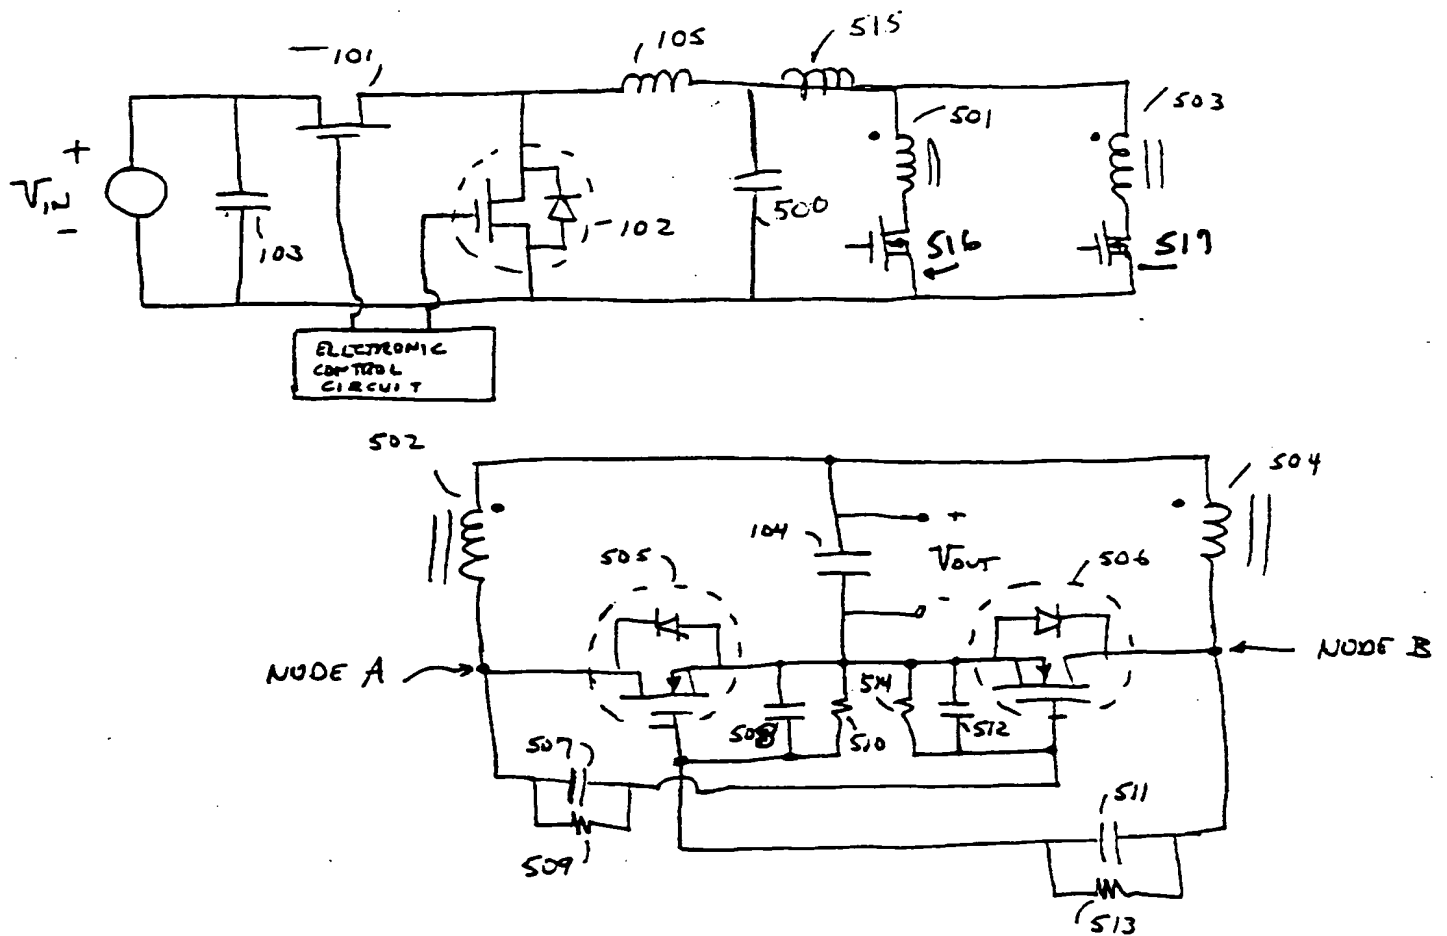 101
105
515
+
VIN
-
103
102
500
501
503
516
517
ELECTRONIC
CONTROL
CIRCUIT
502
504
104
+
VOUT
-
505
506
NODE A
NODE B
507
508
510
514
512
509
511
513